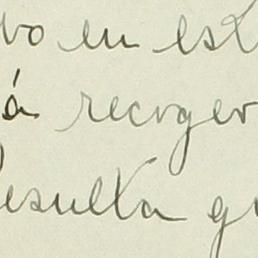 vo en est
á recoger
Resulta qu